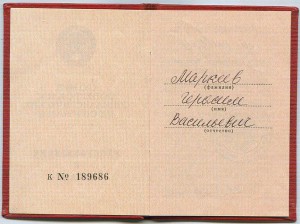 К № 189686
Маркев
(фамилия)
Герасим
(имя)
Васильевич
(отчество)